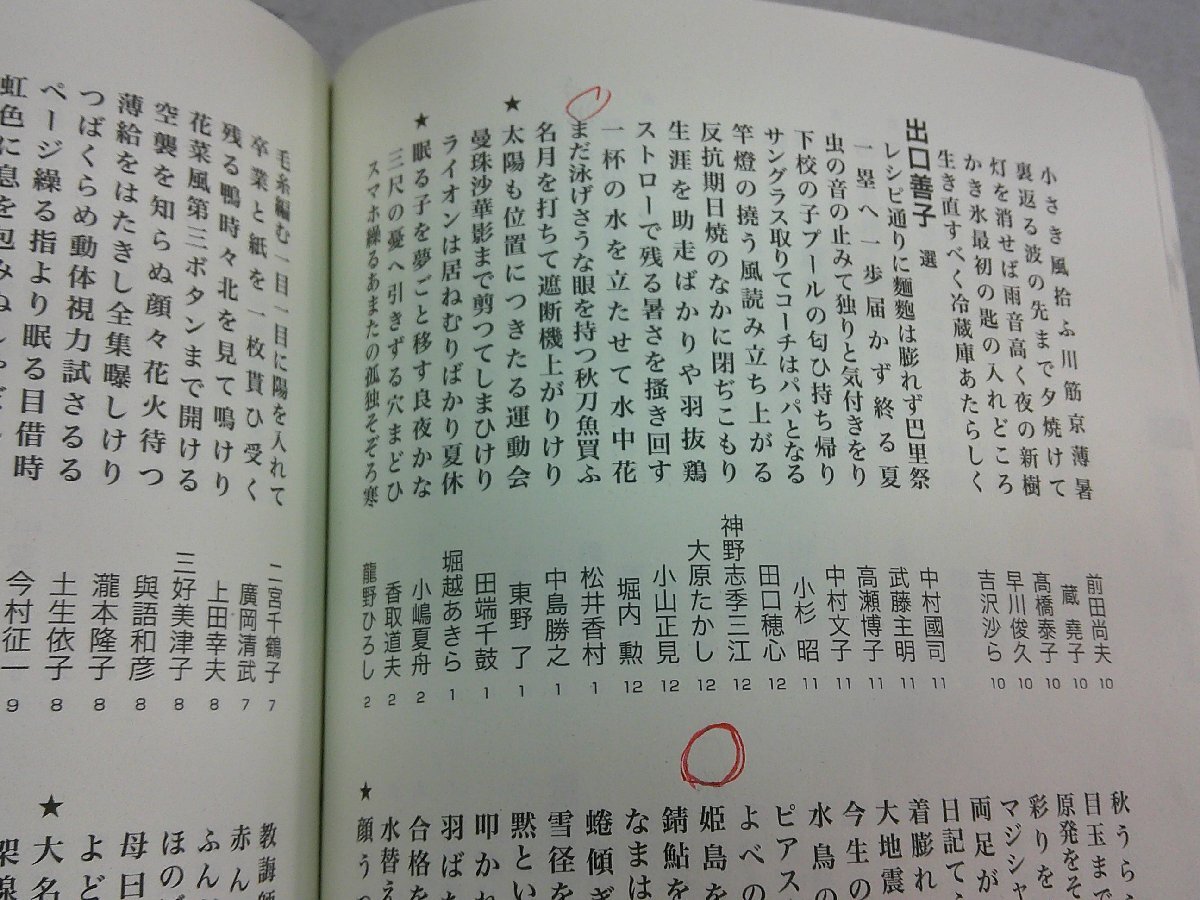 小さき風拾ふ川筋京薄暑 前田尚夫 10
裏返る波の先まで夕焼けて 蔵 堯子 10
灯を消せば雨音高く夜の新樹 髙橋泰子 10
かき氷最初の匙の入れどころ 早川俊久 10
生き直すべく冷蔵庫あたらしく 吉沢沙ら 10
出口善子 選
レシピ通りに麵麭は膨れず巴里祭 中村國司 11
一塁へ一歩届かず終る夏 武藤主明 11
虫の音の止みて独りと気付きをり 高瀬博子 11
下校の子プールの匂ひ持ち帰り 中村文子 11
サングラス取りてコーチはパパとなる 小杉 昭 11
竿燈の撓う風読み立ち上がる 田口穂心 12
反抗期日焼のなかに閉ぢこもり 神野志季三江 12
生涯を助走ばかりや羽抜鶏 大原たかし 12
ストローで残る暑さを掻き回す 小山正見 12
一杯の水を立たせて水中花 堀内 勲 12
まだ泳げさうな眼を持つ秋刀魚買ふ 松井香村 1
名月を打ちて遮断機上がりけり 中島勝之 1
★太陽も位置につきたる運動会 東野 了 1
曼珠沙華影まで剪つてしまひけり 田端千鼓 1
ライオンは居ねむりばかり夏休 堀越あきら 1
★眠る子を夢ごと移す良夜かな 小嶋夏舟 2
三尺の憂へ引きずる穴まどひ 香取道夫 2
スマホ繰るあまたの孤独そぞろ寒 龍野ひろし 2
秋うら
目玉まで
原発をそ
彩りを
マジシャ
両足が
日記て
着膨れ
大地震
今生の
水鳥の
ピアス
よべの
姫島を
錆鮎を
なまは
蜷傾ぎ
雪径を
黙とい
叩かれ
羽ばた
合格を
水替え
★顔うつ
毛糸編む一目一目に陽を入れて 二宮千鶴子 7
卒業と紙を一枚貰ひ受く 廣岡清武 7
残る鴨時々北を見て鳴けり 上田幸夫 8
花菜風第三ボタンまで開ける 三好美津子 8
空襲を知らぬ顔々花火待つ 與語和彦 8
薄給をはたきし全集曝しけり 瀧本隆子 8
つばくらめ動体視力試さるる 土生依子 8
ページ繰る指より眠る目借時 今村征一 9
虹色に息を包みぬしゃぼ
教誨師
赤ん
ふん
ほの
母日
よど
★大名
架線